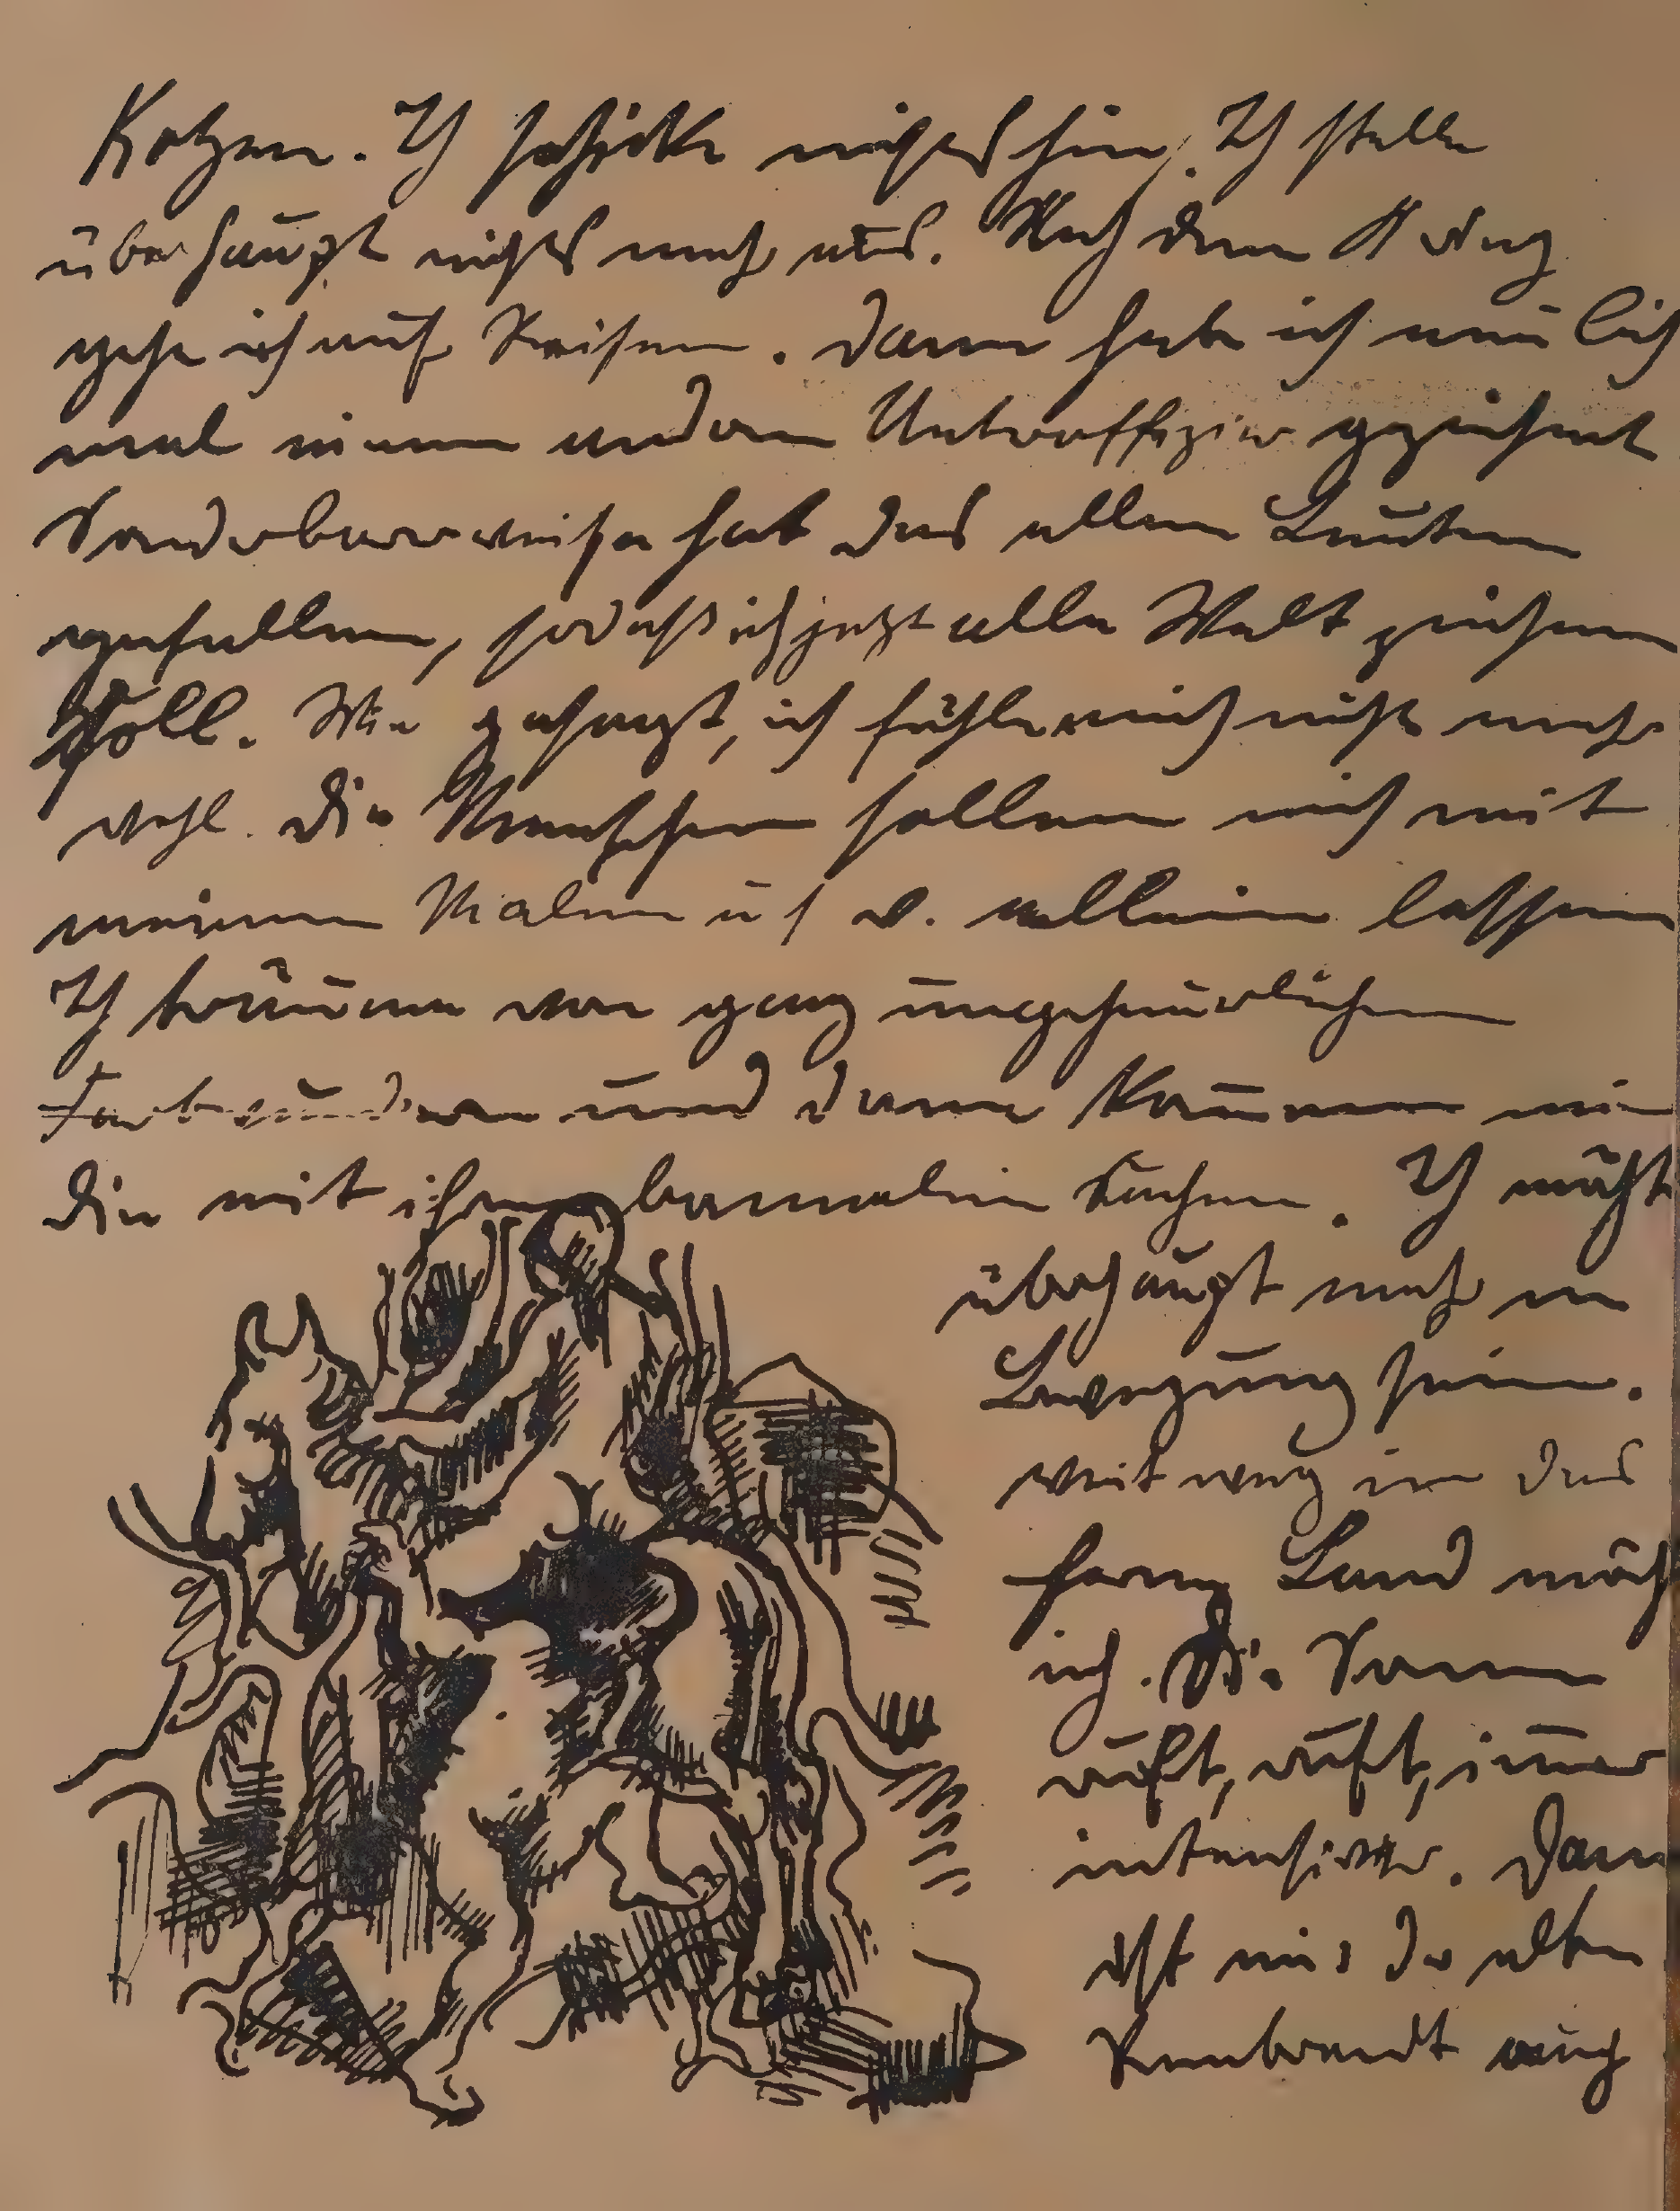 Kotzen. Ich schicke nichts hin. Ich stelle
überhaupt nichts mehr aus. Nach dem Krieg
gehe ich auf Reisen. Dann habe ich neulich
mal einen andern Unteroffizier gezeichnet
Sonderbarerweise hat das allen Leuten
gefallen, sodaß ich jetzt alle Welt zeichnen
soll. Wie gesagt, ich fühle mich nicht mehr
wohl. Die Menschen sollen mich mit
meinem Malen u s w. allein lassen
Ich träume von ganz ungeheuerlichen
und dann kommen mir
die mit ihren Sachen. Ich möcht
überhaupt mehr in
Bewegung sein.
weit weg in das
ferne Land möcht
ich. Die Sonne
ruft, ruft, immer
intensiver. Dann
ist mir der alte
Rembrandt auch